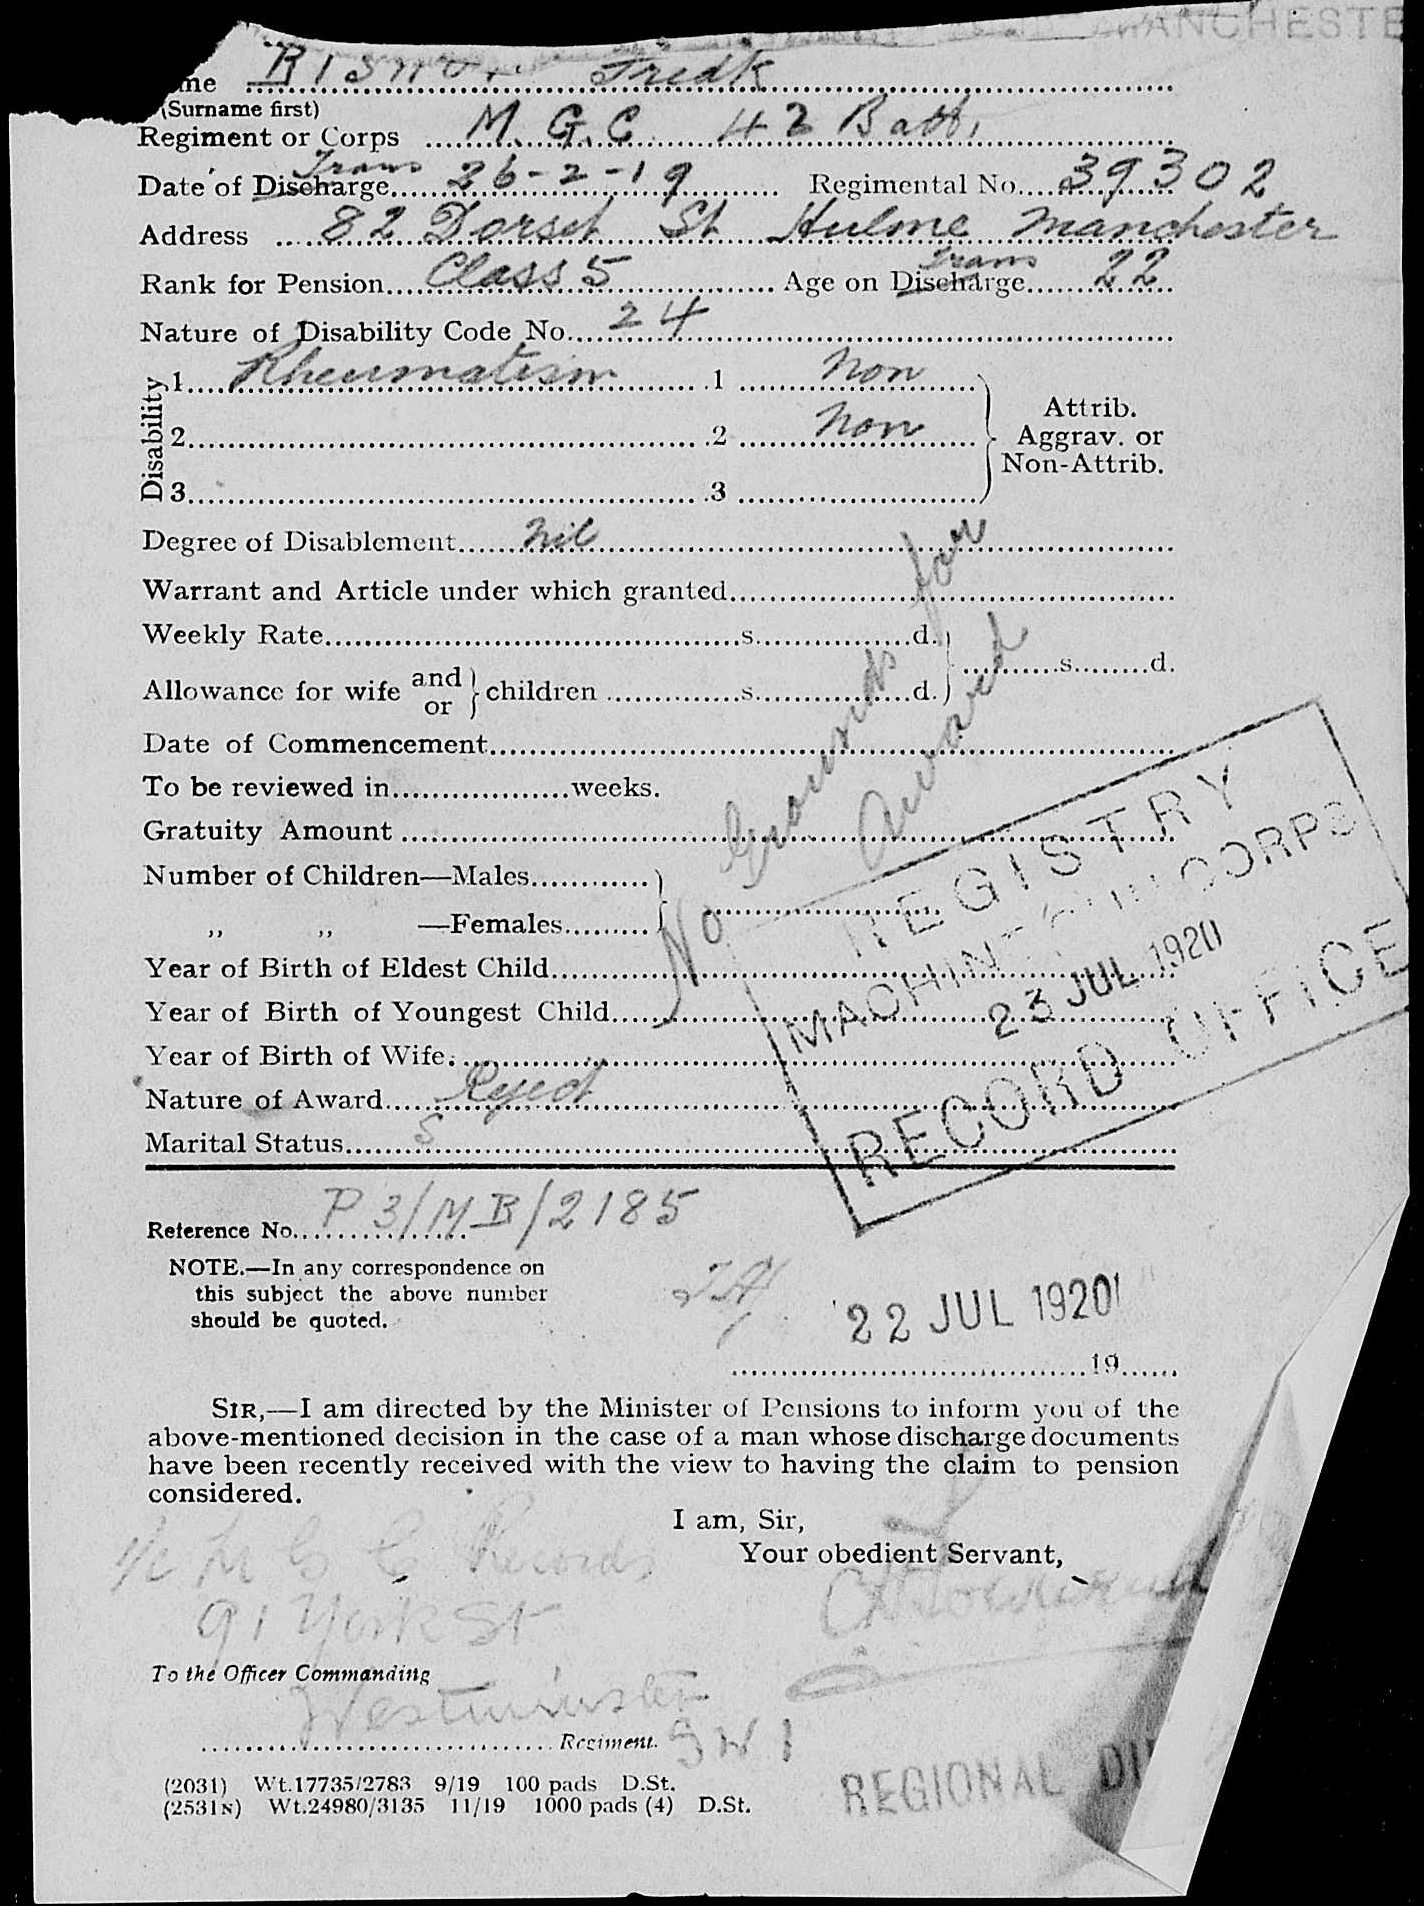 MANCHESTE
me Fredk
(Surname first)
Regiment or Corps M. G. C. 42 Batt.
Trans
Date of Discharge 26-2-19 Regimental No. 39302
Address 82 Dorset St Hulme Manchester
Trans
Rank for Pension Class 5 Age on Discharge 22
Nature of Disability Code No. 24
Disability
1 Rheumatism 1 Non
2 2 Non
3 3
Attrib.
Aggrav. or
Non-Attrib.
Degree of Disablement nil
Warrant and Article under which granted
Weekly Rate s. d.
s. d.
Allowance for wife and or children s. d.
Date of Commencement
To be reviewed in weeks.
Gratuity Amount
Number of Children—Males
„ „ —Females
Year of Birth of Eldest Child
Year of Birth of Youngest Child
Year of Birth of Wife
Nature of Award Reject
Marital Status S
No Grounds for
Award
REGISTRY
MACHINE GUN CORPS
23 JUL 1920
RECORD OFFICE
Reference No. P3/MB/2185
NOTE.—In any correspondence on
this subject the above number
should be quoted.
22 JUL 1920
19
SIR,—I am directed by the Minister of Pensions to inform you of the
above-mentioned decision in the case of a man whose discharge documents
have been recently received with the view to having the claim to pension
considered.
I am, Sir,
Your obedient Servant,
i/c M G C Records
91 York St
To the Officer Commanding
Westminster
Regiment. SW1
REGIONAL DI
(2031) Wt.17735/2783 9/19 100 pads D.St.
(2531N) Wt.24980/3135 11/19 1000 pads (4) D.St.